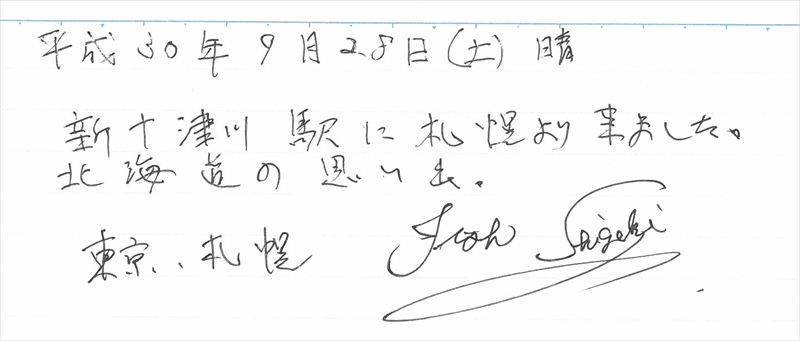 平成30年9月28日(土) 晴
新十津川駅に札幌より来ました。
北海道の思い出。
東京、札幌 Itoh Shigeki